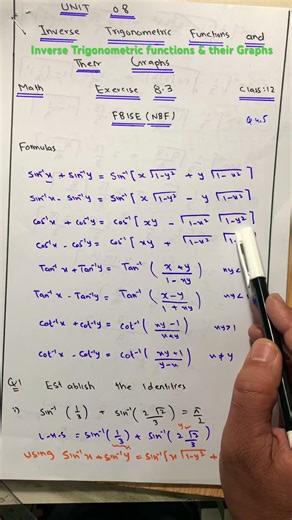 UNIT 08
Inverse Trigonometric Functions and
Inverse Trigonometric functions & their Graphs
Their Graphs
Math Exercise 8.3 Class:12
FBISE (NBF) Q 4,5
Formulas
Sin⁻¹x + Sin⁻¹y = Sin⁻¹[x√(1-y²) + y√(1-x²)]
Sin⁻¹x - Sin⁻¹y = Sin⁻¹[x√(1-y²) - y√(1-x²)]
Cos⁻¹x + Cos⁻¹y = Cos⁻¹[xy - √(1-x²) √(1-y²)]
Cos⁻¹x - Cos⁻¹y = Cos⁻¹[xy + √(1-x²) √(1-
Tan⁻¹x + Tan⁻¹y = Tan⁻¹((x+y)/(1-xy)) xy <
Tan⁻¹x - Tan⁻¹y = Tan⁻¹((x-y)/(1+xy)) xy <
Cot⁻¹x + Cot⁻¹y = Cot⁻¹((xy-1)/(x+y)) xy > 1
Cot⁻¹x - Cot⁻¹y = Cot⁻¹((xy+1)/(y-x)) x ≠ y
Q1 Establish the Identities
i) Sin⁻¹(1/3) + Sin⁻¹(2√2/3) = π/2
L.H.S = Sin⁻¹(1/3) + Sin⁻¹(2√2/3)
using Sin⁻¹x + Sin⁻¹y = Sin⁻¹[x√(1-y²) +